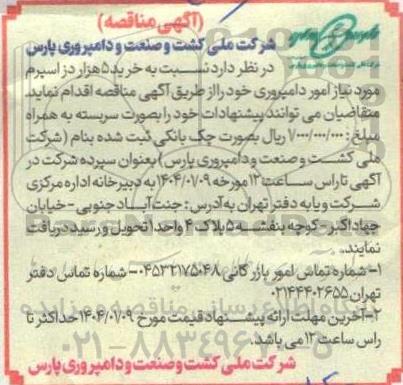 (آگهی مناقصه)
شرکت ملی کشت و صنعت و دامپروری پارس
در نظر دارد نسبت به خرید ۵ هزار دز اسپرم
مورد نیاز امور دامپروری خود را از طریق آگهی مناقصه اقدام نماید
متقاضیان می توانند پیشنهادات خود را بصورت سربسته به همراه
مبلغ: ۷/۰۰۰/۰۰۰/۰۰۰ ریال بصورت چک بانکی ثبت شده بنام (شرکت
ملی کشت و صنعت و دامپروری پارس) بعنوان سپرده شرکت در
آگهی تا راس ساعت ۱۲ مورخه ۱۴۰۴/۰۱/۰۹ به دبیرخانه اداره مرکزی
شرکت و یا به دفتر تهران به آدرس: جنت آباد جنوبی - خیابان
جهاد اکبر - کوچه بنفشه ۵ پلاک ۴ واحد ۱ تحویل و رسید دریافت
نمایند.
۱- شماره تماس امور بازرگانی ۰۴۵۳۲۱۷۵۰۴۸ - شماره تماس دفتر
تهران ۰۲۱۴۴۴۰۲۶۵۵
۲- آخرین مهلت ارائه پیشنهاد قیمت مورخ ۱۴۰۴/۰۱/۰۹ حداکثر تا
راس ساعت ۱۲ می باشد.
۰۲۱-۸۸۳۴۹۶۷۰-۵
شرکت ملی کشت و صنعت و دامپروری پارس